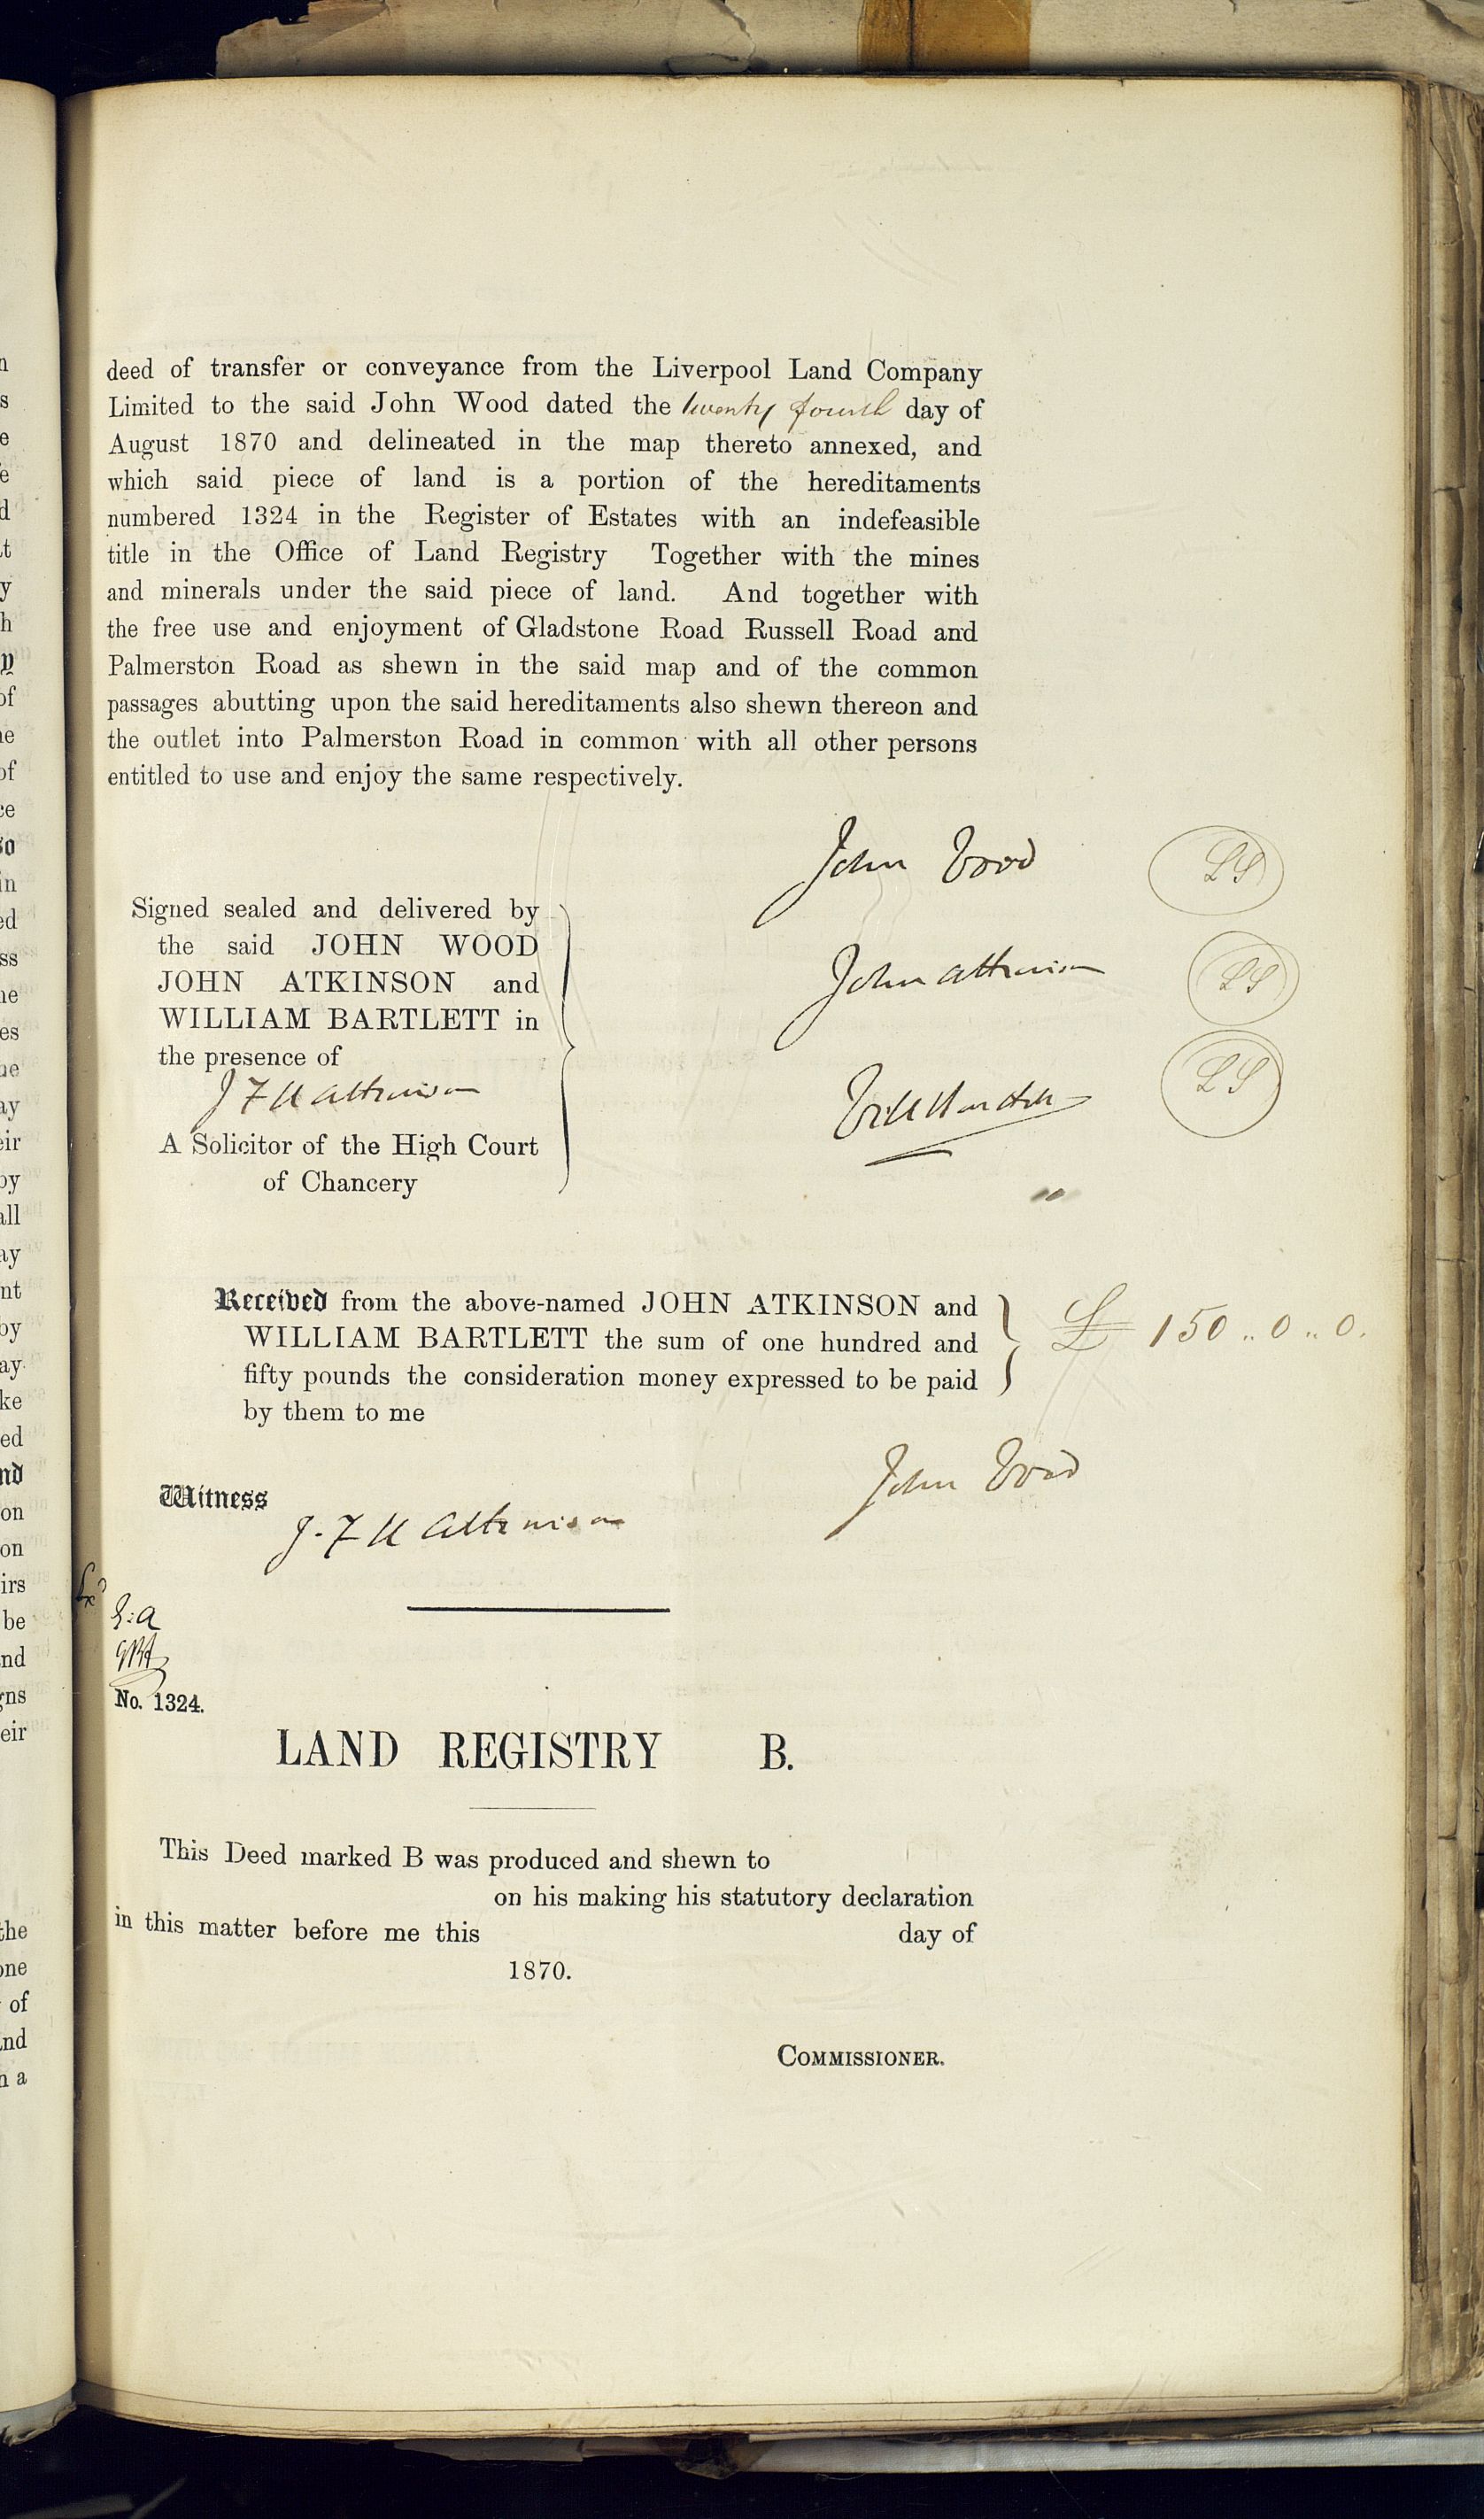 deed of transfer or conveyance from the Liverpool Land Company
Limited to the said John Wood dated the twenty fourth day of
August 1870 and delineated in the map thereto annexed, and
which said piece of land is a portion of the hereditaments
numbered 1324 in the Register of Estates with an indefeasible
title in the Office of Land Registry Together with the mines
and minerals under the said piece of land. And together with
the free use and enjoyment of Gladstone Road Russell Road and
Palmerston Road as shewn in the said map and of the common
passages abutting upon the said hereditaments also shewn thereon and
the outlet into Palmerston Road in common with all other persons
entitled to use and enjoy the same respectively.
John Wood LS
Signed sealed and delivered by
the said JOHN WOOD
JOHN ATKINSON and
WILLIAM BARTLETT in
the presence of
J F H Atkinson
A Solicitor of the High Court
of Chancery
John Atkinson LS
Will Bartlett LS
Received from the above-named JOHN ATKINSON and
WILLIAM BARTLETT the sum of one hundred and
fifty pounds the consideration money expressed to be paid
by them to me
£ 150 .. 0 .. 0.
John Wood
Witness
J. F H Atkinson
Exd
No. 1324.
LAND REGISTRY B.
This Deed marked B was produced and shewn to
on his making his statutory declaration
in this matter before me this day of
1870.
COMMISSIONER.
the
one
of
and
n a